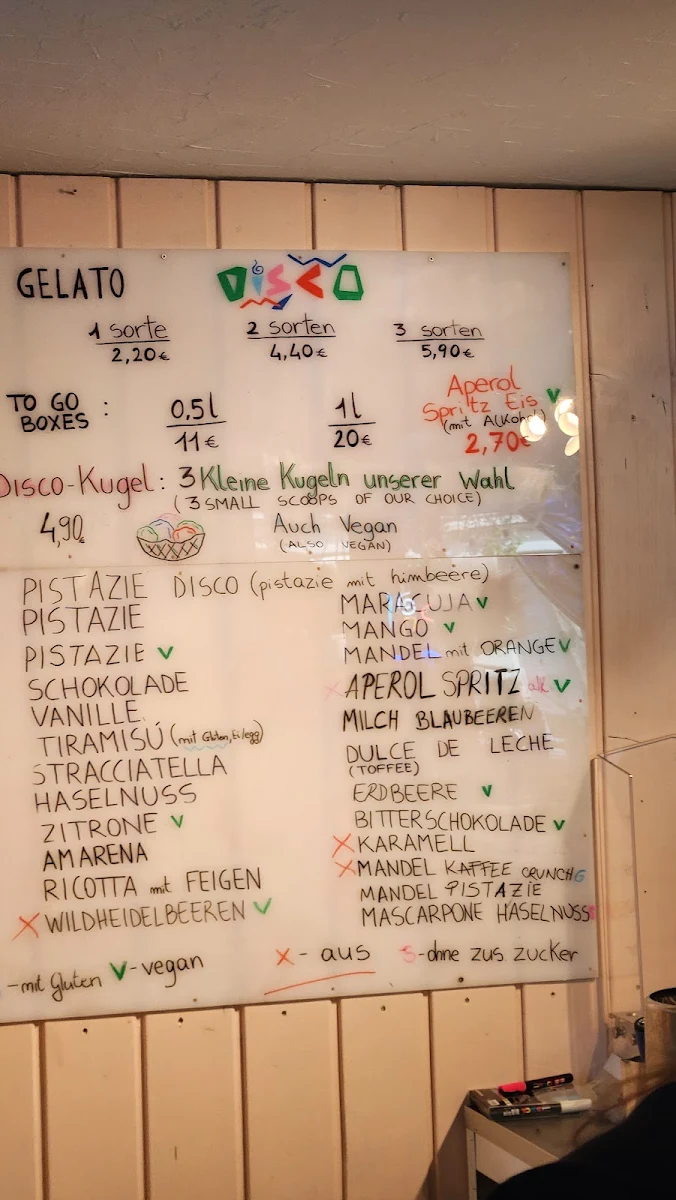 GELATO DISCO
1 sorte 2 sorten 3 sorten
2,20€ 4,40€ 5,90€
TO GO BOXES : 0,5l 1l
11€ 20€
Aperol
Spritz Eis V
(mit Alkohol)
2,70€
Disco-Kugel: 3 Kleine Kugeln unserer Wahl
(3 SMALL SCOOPS OF OUR CHOICE)
4,90€ Auch Vegan
(ALSO VEGAN)
PISTAZIE DISCO (pistazie mit himbeere)
PISTAZIE
PISTAZIE V
SCHOKOLADE
VANILLE
TIRAMISÚ (mit Gluten, Ei/egg)
STRACCIATELLA
HASELNUSS
ZITRONE V
AMARENA
RICOTTA mit FEIGEN
X WILDHEIDELBEEREN V
MARACUJA V
MANGO V
MANDEL mit ORANGE V
X APEROL SPRITZ alk V
MILCH BLAUBEEREN
DULCE DE LECHE
(TOFFEE)
ERDBEERE V
BITTERSCHOKOLADE V
X KARAMELL
X MANDEL KAFFEE CRUNCH G
MANDEL PISTAZIE
MASCARPONE HASELNUSS
-mit Gluten V-vegan X - aus S-ohne zus. zucker